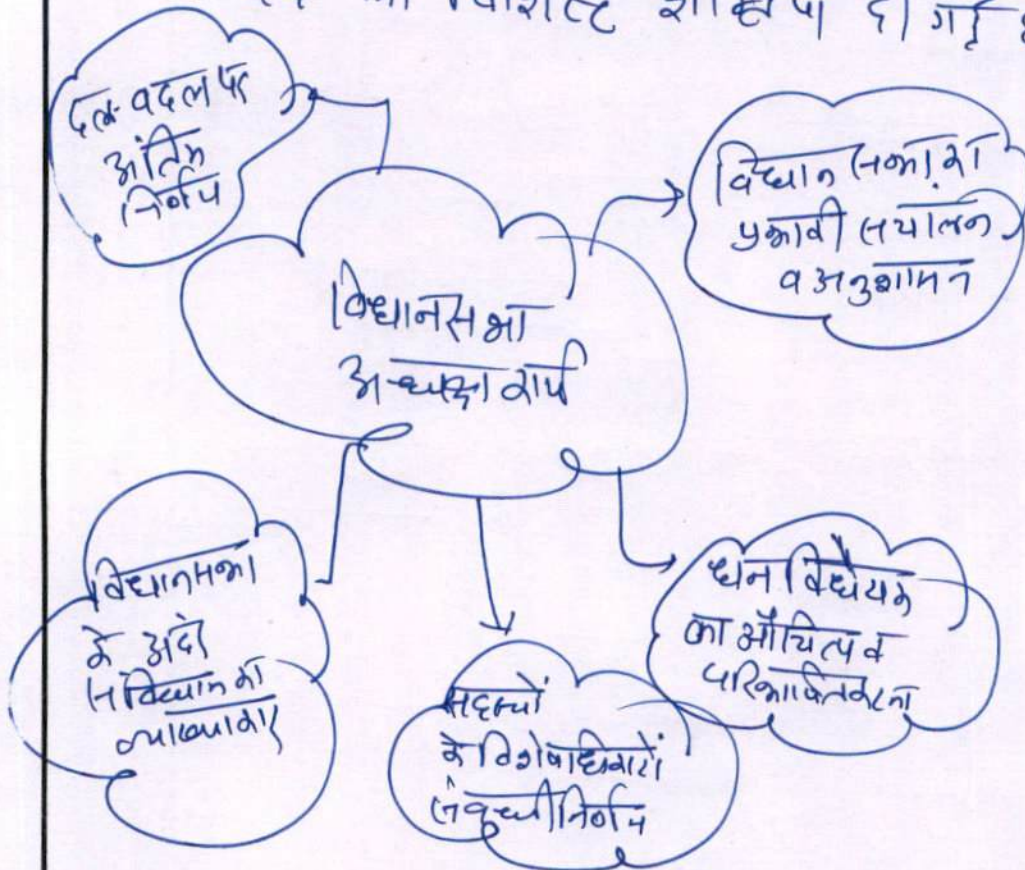 विशिष्ट शक्तियां दी गई
दल बदल पर
अंतिम
निर्णय
विधानसभा का
प्रभावी संचालन
व अनुशासन
विधानसभा
अध्यक्ष कार्य
विधानसभा
के अंदर
संविधान का
व्याख्याकार
सदस्यों
के विशेषाधिकारों
संबंधी निर्णय
धन विधेयक
का औचित्य व
परिभाषित करना